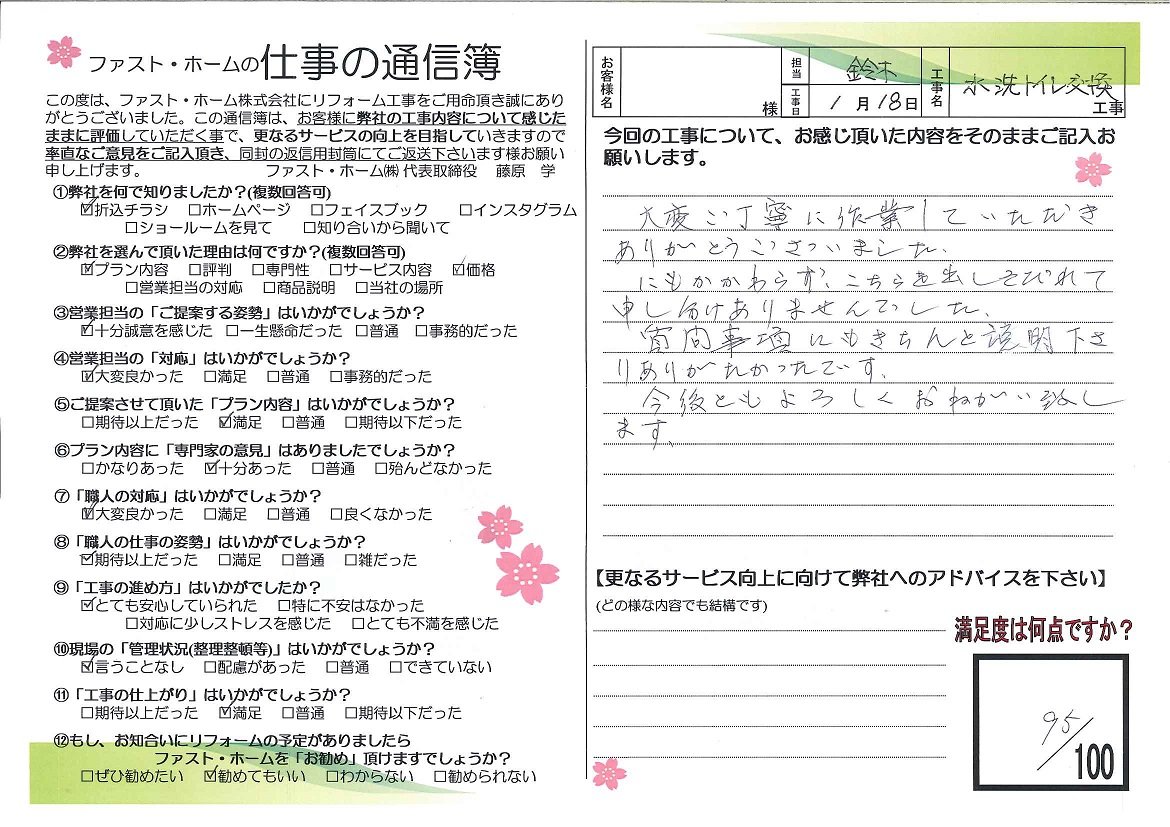 ファスト・ホームの仕事の通信簿
この度は、ファスト・ホーム株式会社にリフォーム工事をご用命頂き誠にあり
がとうございました。この通信簿は、お客様に弊社の工事内容について感じた
ままに評価していただく事で、更なるサービスの向上を目指していきますので
率直なご意見をご記入頂き、同封の返信用封筒にてご返送下さいます様お願い
申し上げます。 ファスト・ホーム㈱ 代表取締役 藤原 学
①弊社を何で知りましたか？(複数回答可)
☑折込チラシ □ホームページ □フェイスブック □インスタグラム
□ショールームを見て □知り合いから聞いて
②弊社を選んで頂いた理由は何ですか？(複数回答可)
☑プラン内容 □評判 □専門性 □サービス内容 ☑価格
□営業担当の対応 □商品説明 □当社の場所
③営業担当の「ご提案する姿勢」はいかがでしょうか？
☑十分誠意を感じた □一生懸命だった □普通 □事務的だった
④営業担当の「対応」はいかがでしょうか？
☑大変良かった □満足 □普通 □事務的だった
⑤ご提案させて頂いた「プラン内容」はいかがでしょうか？
□期待以上だった ☑満足 □普通 □期待以下だった
⑥プラン内容に「専門家の意見」はありましたでしょうか？
□かなりあった ☑十分あった □普通 □殆んどなかった
⑦「職人の対応」はいかがでしょうか？
☑大変良かった □満足 □普通 □良くなかった
⑧「職人の仕事の姿勢」はいかがでしょうか？
☑期待以上だった □満足 □普通 □雑だった
⑨「工事の進め方」はいかがでしたか？
☑とても安心していられた □特に不安はなかった
□対応に少しストレスを感じた □とても不満を感じた
⑩現場の「管理状況(整理整頓等)」はいかがでしょうか？
☑言うことなし □配慮があった □普通 □できていない
⑪「工事の仕上がり」はいかがでしょうか？
□期待以上だった ☑満足 □普通 □期待以下だった
⑫もし、お知合いにリフォームの予定がありましたら
ファスト・ホームを「お勧め」頂けますでしょうか？
□ぜひ勧めたい ☑勧めてもいい □わからない □勧められない
お客様名 様 担当 鈴木 工事日 1月18日 工事名 水洗トイレ交換 工事
今回の工事について、お感じ頂いた内容をそのままご記入お
願いします。
大変ご丁寧に作業していただき
ありがとうございました。
にもかかわらず、こちらを出しそびれて
申し訳ありませんでした。
質問事項にもきちんと説明下さ
りありがたかったです。
今後ともよろしくおねがい致し
ます。
【更なるサービス向上に向けて弊社へのアドバイスを下さい】
(どの様な内容でも結構です)
満足度は何点ですか？
95/100